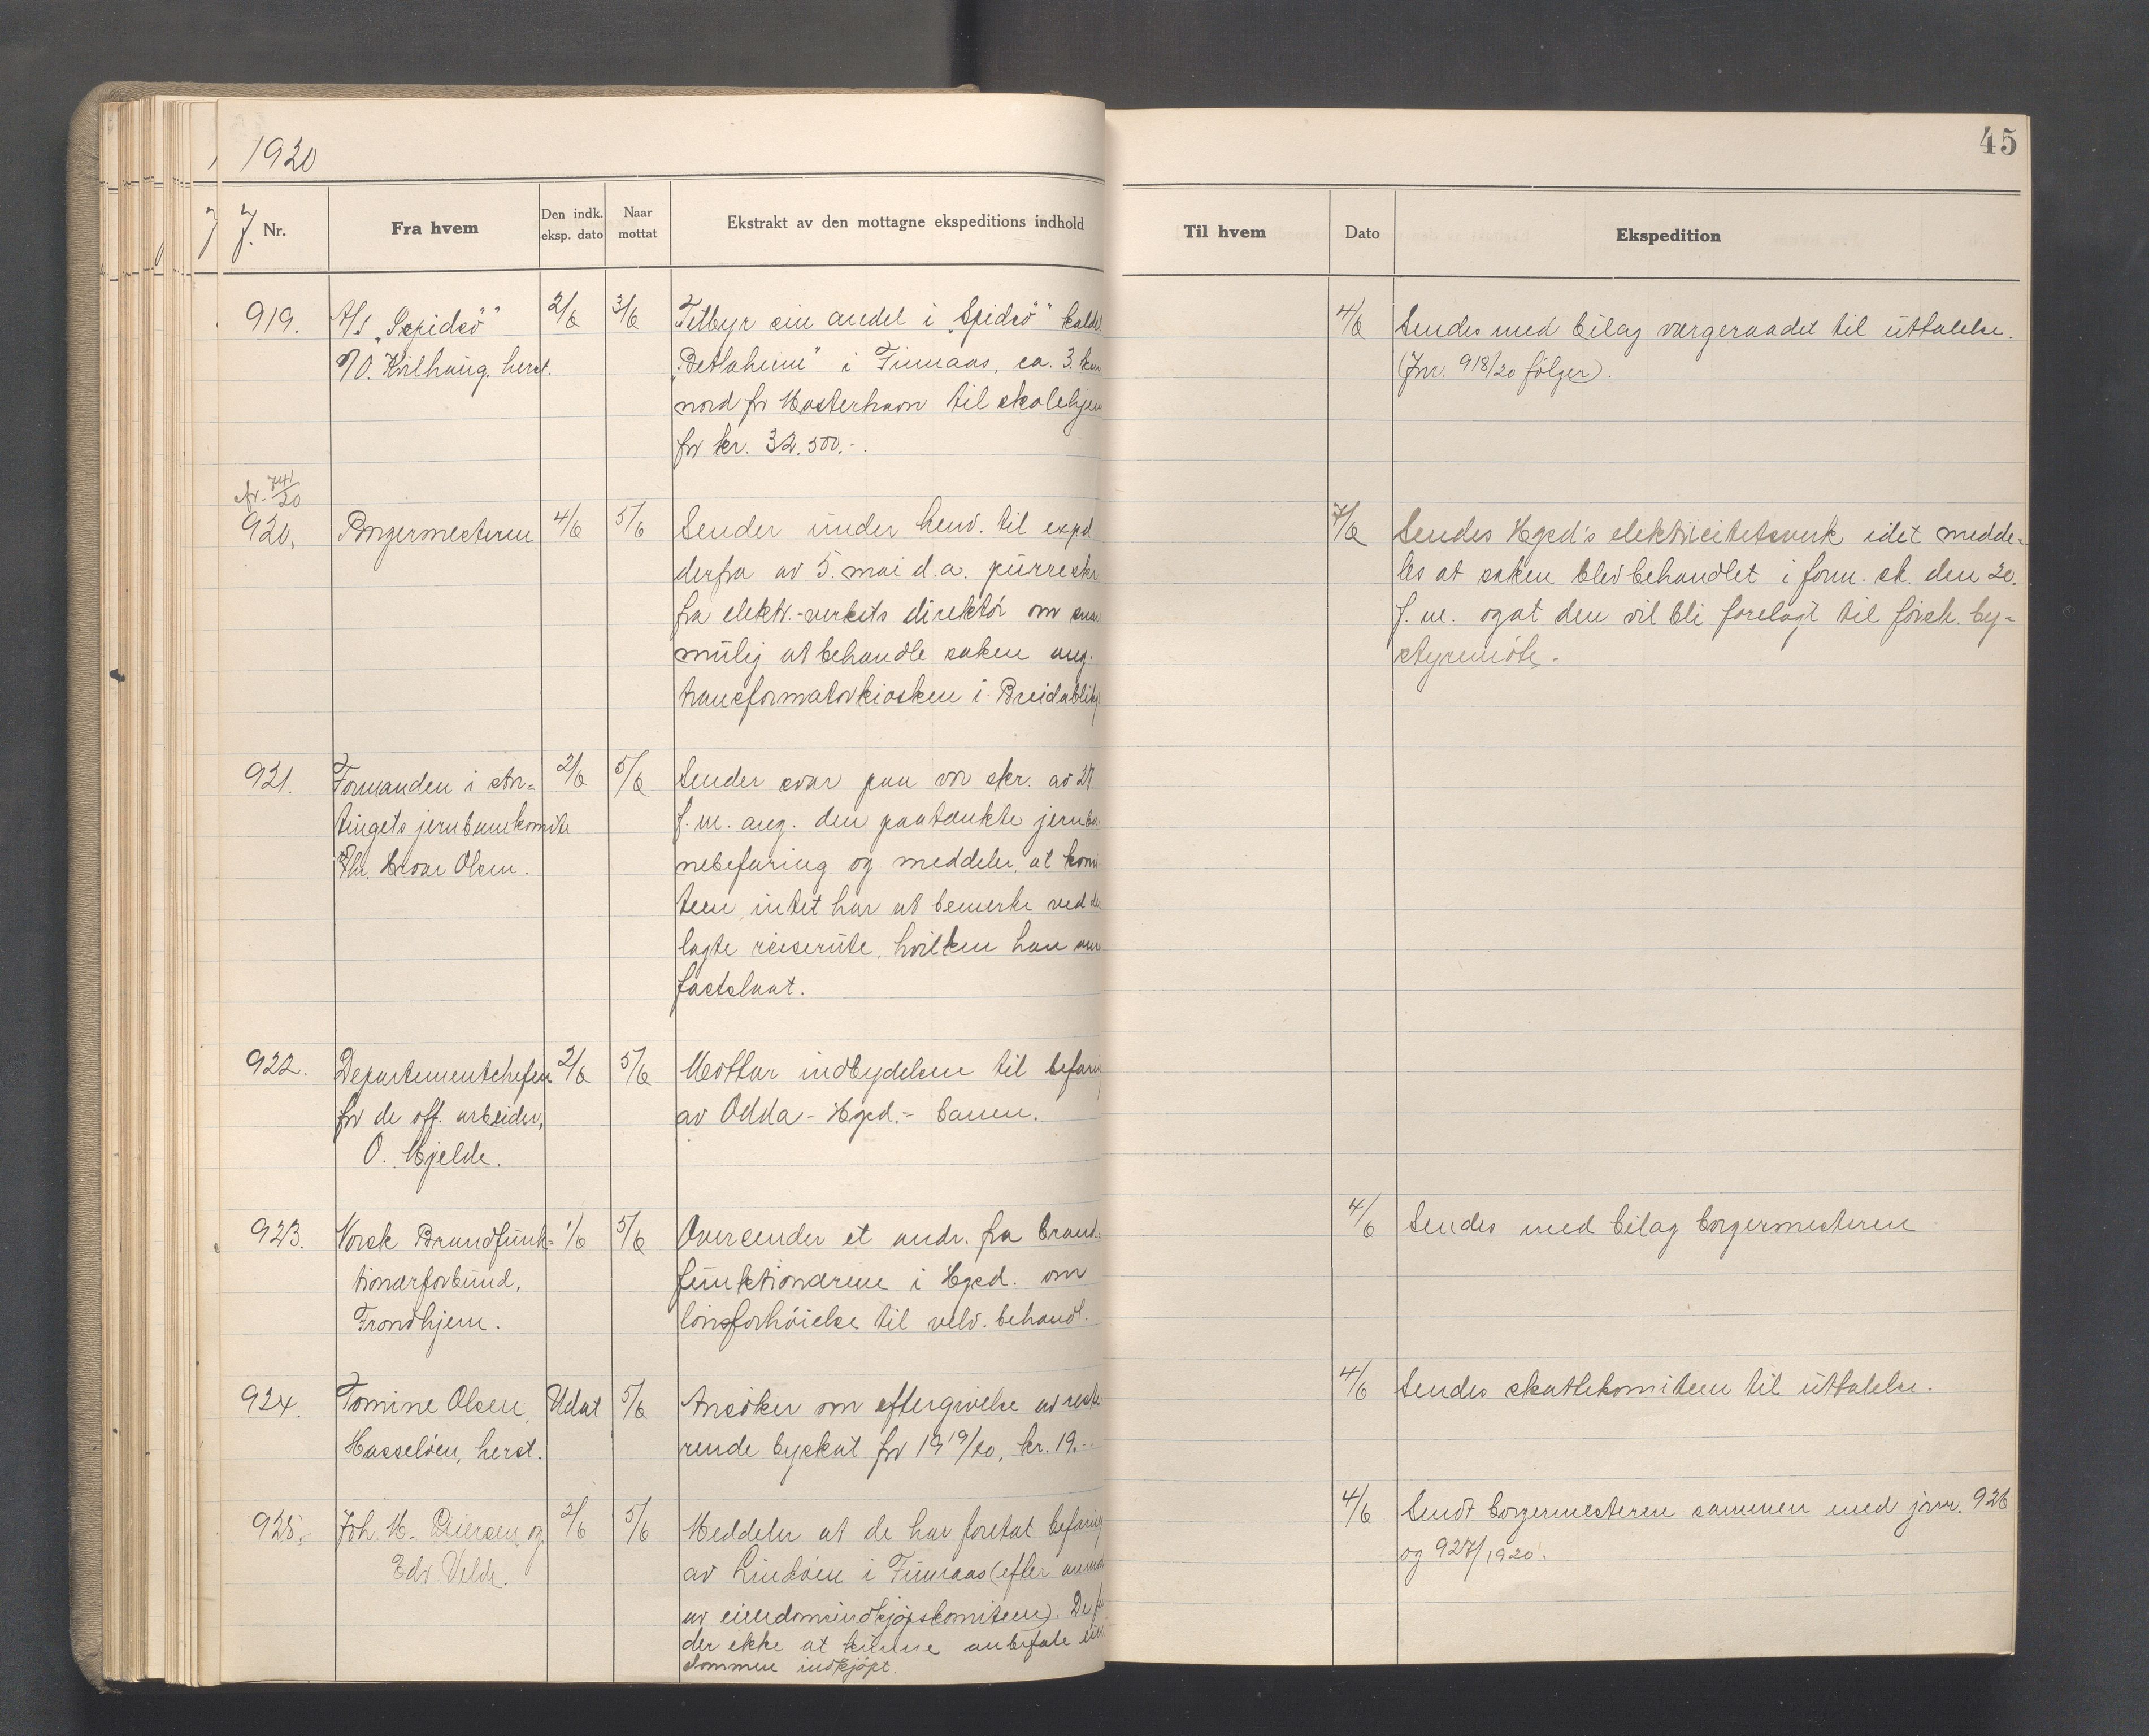 1920
45
J. Nr.
Fra hvem
Den indk. eksp. dato
Naar mottat
Ekstrakt av den mottagne ekspeditions indhold
Til hvem
Dato
Ekspedition
919.
A/S „Spidsö"
v/ O. Kvilhaug, herst.
2/6
3/6
Tilbyr sin andel i „Spidsö" kaldet
„Betlaheim" i Finnaas, ca. 3. km
nord for Mosterhavn til skolehjem
for kr. 32.500.-.
4/6
Sendes med bilag værgeraadet til uttalelse.
(Jnr. 918/20 følger).
cfr. 741/20
920.
Borgermesteren
4/6
5/6
Sender under henv. til expd.
derfra av 5. mai d.a. purreskr.
fra elektr.-verkets direktör om snar
mulig at behandle saken ang.
transformatorkiosken i Breidablikg
7/6
Sendes Hgsd's elektricitetsverk idet medde-
les at saken blev behandlet i form. sk. den 20.
f. m. og at den vil bli forelagt til förstk. by-
styremöte.-
921.
Formanden i stor-
tingets jernbanekomite
Hr. Hroar Olsen.
2/6
5/6
Sender svar paa vor skr. av 27.
f. m. ang. den paatænkte jernba-
nebefaring og meddeler, at komi-
teen intet har at bemerke ved den
lagte reiserute, hvilken han
fastslaat.
922.
Departementchefen
for de off. arbeider,
O. Mjelde.
2/6
5/6
Mottar indbydelsen til befaring
av Odda-Hgsd.-banen.
923.
Norsk Brandfunk-
tionærforbund,
Trondhjem.
1/6
5/6
Oversender et andr. fra brand-
funktionærene i Hgsd. om
lönsforhöielse til velv. behandl.
4/6
Sendes med bilag borgermesteren
924.
Tomine Olsen,
Hasselöen, herst.
Udat
5/6
Ansöker om eftergivelse av reste-
rende byskat for 1919/20, kr. 19.-.
4/6
Sendes skattekomiteen til uttalelse.
925.
Joh. M. og
Edv. Velde.
2/6
5/6
Meddeler at de har foretat befaring
av Lindöen i Finnaas (efter anmod
av eiendomsindkjöpskomiteen). De fin
der ikke at kunne anbefale eien
dommen indkjöpt.
4/6
Sendt borgermesteren sammen med jnr. 926
og 927/1920.